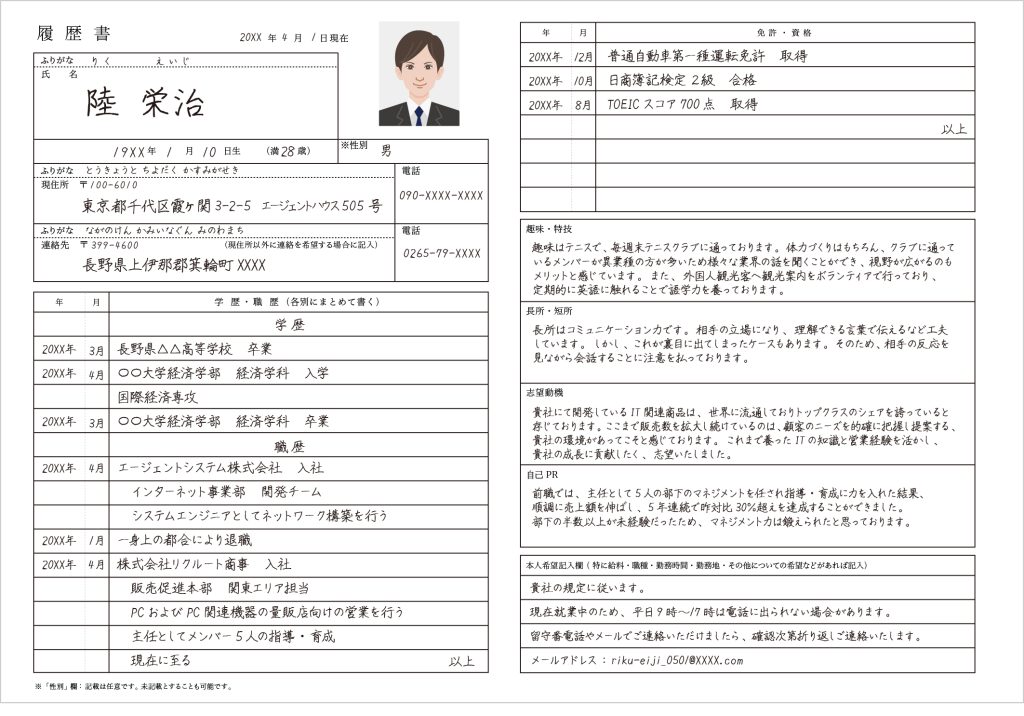 履歴書
20XX 年 4 月 1 日現在
ふりがな りく えいじ
氏 名
陸 栄治
19XX 年 1 月 10 日生 (満 28 歳)
※性別 男
ふりがな とうきょうと ちよだく かすみがせき
現住所 〒100-6010
東京都千代区霞ヶ関 3-2-5 エージェントハウス 505 号
電話
090-XXXX-XXXX
ふりがな ながのけん かみいなぐん みのわまち
連絡先 〒399-4600 (現住所以外に連絡を希望する場合に記入)
長野県上伊那郡箕輪町 XXXX
電話
0265-79-XXXX
年 月 学歴・職歴(各別にまとめて書く)
学歴
20XX年 3月 長野県△△高等学校 卒業
20XX年 4月 〇〇大学経済学部 経済学科 入学
国際経済専攻
20XX年 3月 〇〇大学経済学部 経済学科 卒業
職歴
20XX年 4月 エージェントシステム株式会社 入社
インターネット事業部 開発チーム
システムエンジニアとしてネットワーク構築を行う
20XX年 1月 一身上の都会により退職
20XX年 4月 株式会社リクルート商事 入社
販売促進本部 関東エリア担当
PC および PC 関連機器の量販店向けの営業を行う
主任としてメンバー 5 人の指導・育成
現在に至る 以上
※「性別」欄:記載は任意です。未記載とすることも可能です。
年 月 免許・資格
20XX年 12月 普通自動車第一種運転免許 取得
20XX年 10月 日商簿記検定 2 級 合格
20XX年 8月 TOEIC スコア 700 点 取得
以上
趣味・特技
趣味はテニスで、毎週末テニスクラブに通っております。体力づくりはもちろん、クラブに通って
いるメンバーが異業種の方が多いため様々な業界の話を聞くことができ、視野が広がるのも
メリットと感じています。また、外国人観光客へ観光案内をボランティアで行っており、
定期的に英語に触れることで語学力を養っております。
長所・短所
長所はコミュニケーション力です。相手の立場になり、理解できる言葉で伝えるなど工夫
しています。しかし、これが裏目に出てしまったケースもあります。そのため、相手の反応を
見ながら会話することに注意を払っております。
志望動機
貴社にて開発している IT 関連商品は、世界に流通しておりトップクラスのシェアを誇っていると
存じております。ここまで販売数を拡大し続けているのは、顧客のニーズを的確に把握し提案する、
貴社の環境があってこそと感じております。これまで養った IT の知識と営業経験を活かし、
貴社の成長に貢献したく、志望いたしました。
自己 PR
前職では、主任として 5 人の部下のマネジメントを任され指導・育成に力を入れた結果、
順調に売上額を伸ばし、5 年連続で昨対比 30%超えを達成することができました。
部下の半数以上が未経験だったため、マネジメント力は鍛えられたと思っております。
本人希望記入欄(特に給料・職種・勤務時間・勤務地・その他についての希望などがあれば記入)
貴社の規定に従います。
現在就業中のため、平日 9 時〜17 時は電話に出られない場合があります。
留守番電話やメールでご連絡いただけましたら、確認次第折り返しご連絡いたします。
メールアドレス:riku-eiji_0501@XXXX.com